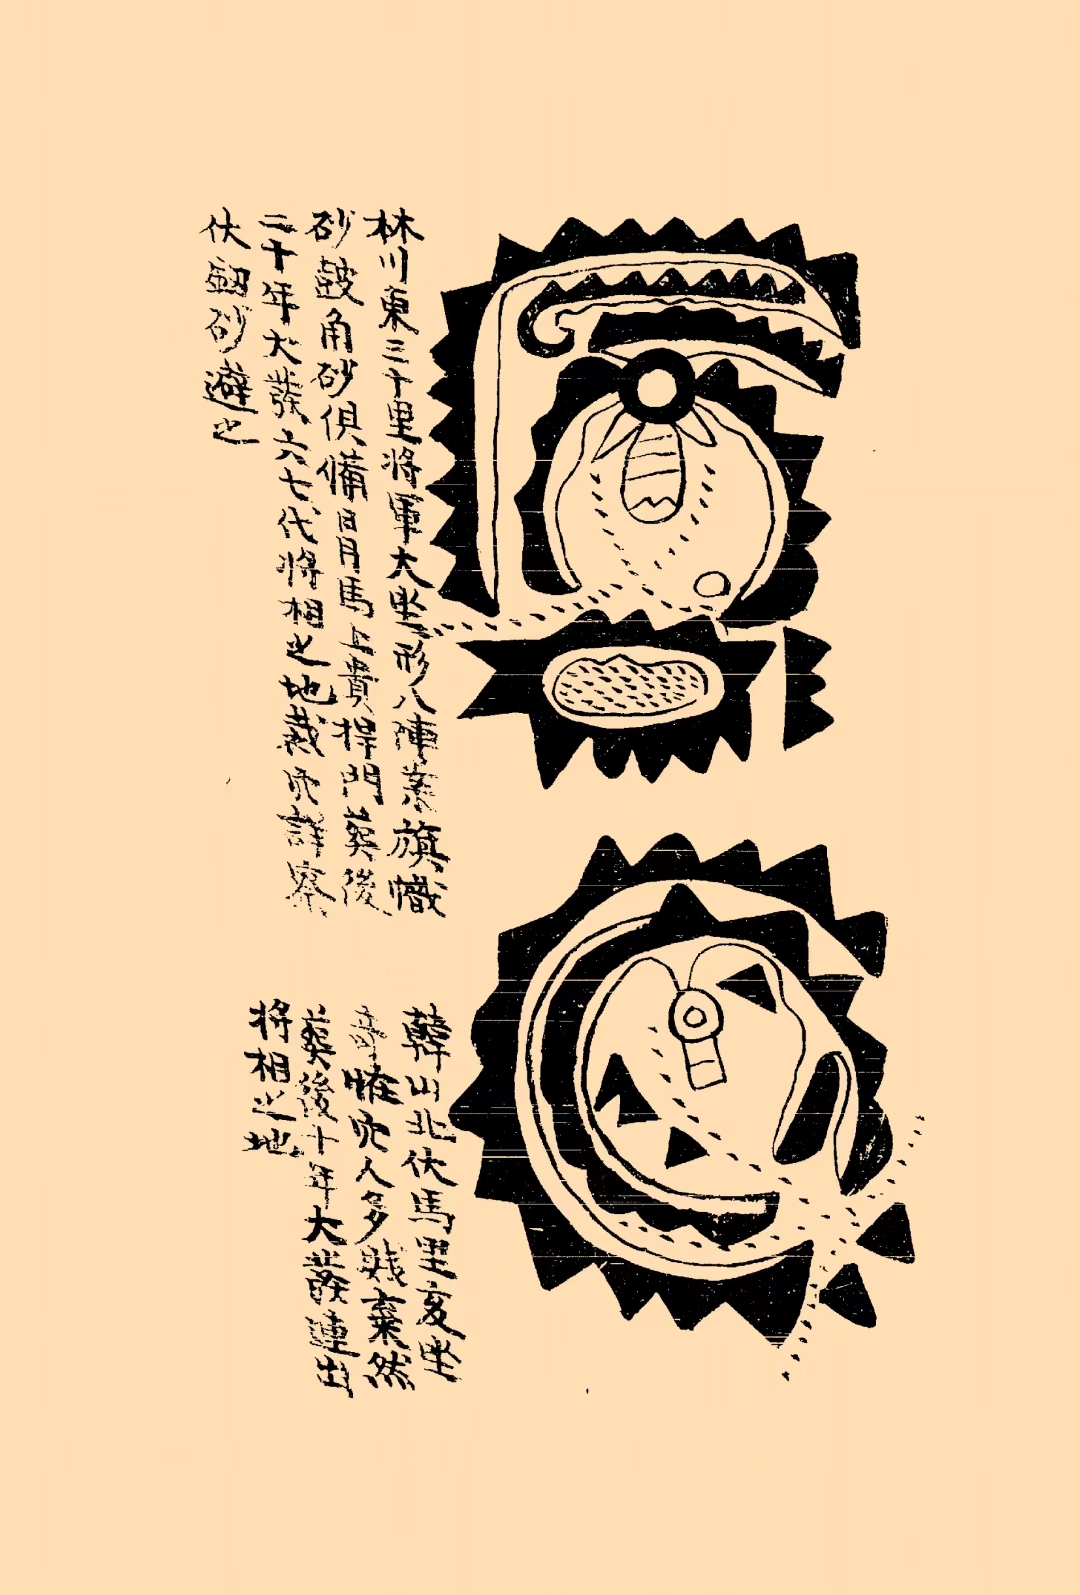 林川東三十里將軍大坐形八陣案旗幟
砂鼓角砂俱備日月馬上貴捍門葬後
二十年大發六七代將相之地裁穴詳察
伏劒砂避之
韓山北伏馬里亥坐
奇怪穴人多賤棄然
葬後十年大發連出
將相之地